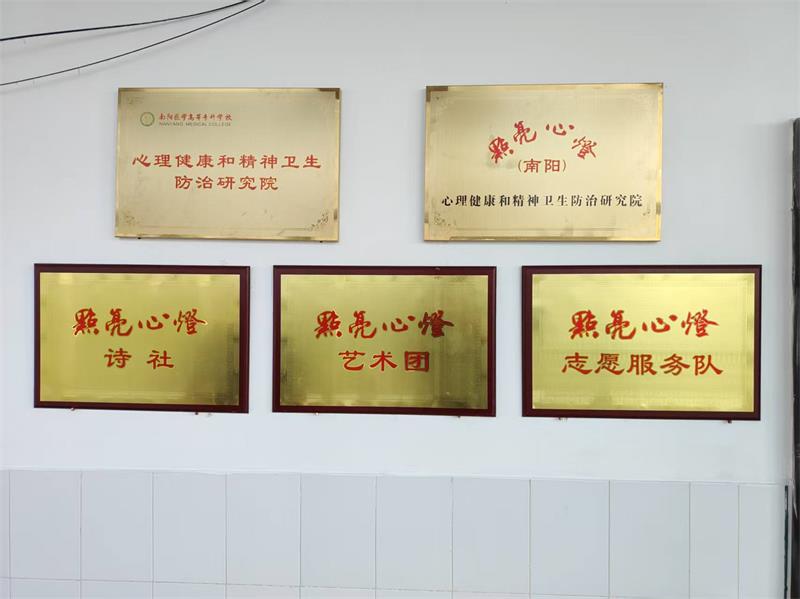 南阳医学高等专科学校
NANYANG MEDICAL COLLEGE
心理健康和精神卫生
防治研究院
點亮心燈
(南阳)
心理健康和精神卫生防治研究院
點亮心燈
诗社
點亮心燈
艺术团
點亮心燈
志愿服务队